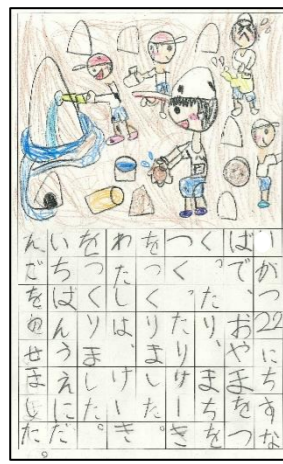 いがつ22にちすな
ばで、おやまをつ
くったり、まちを
つくったりけーき
をつくりました。
わたしは、けーき
をつくりました。
いちばんうえにだ
んだをのせました。